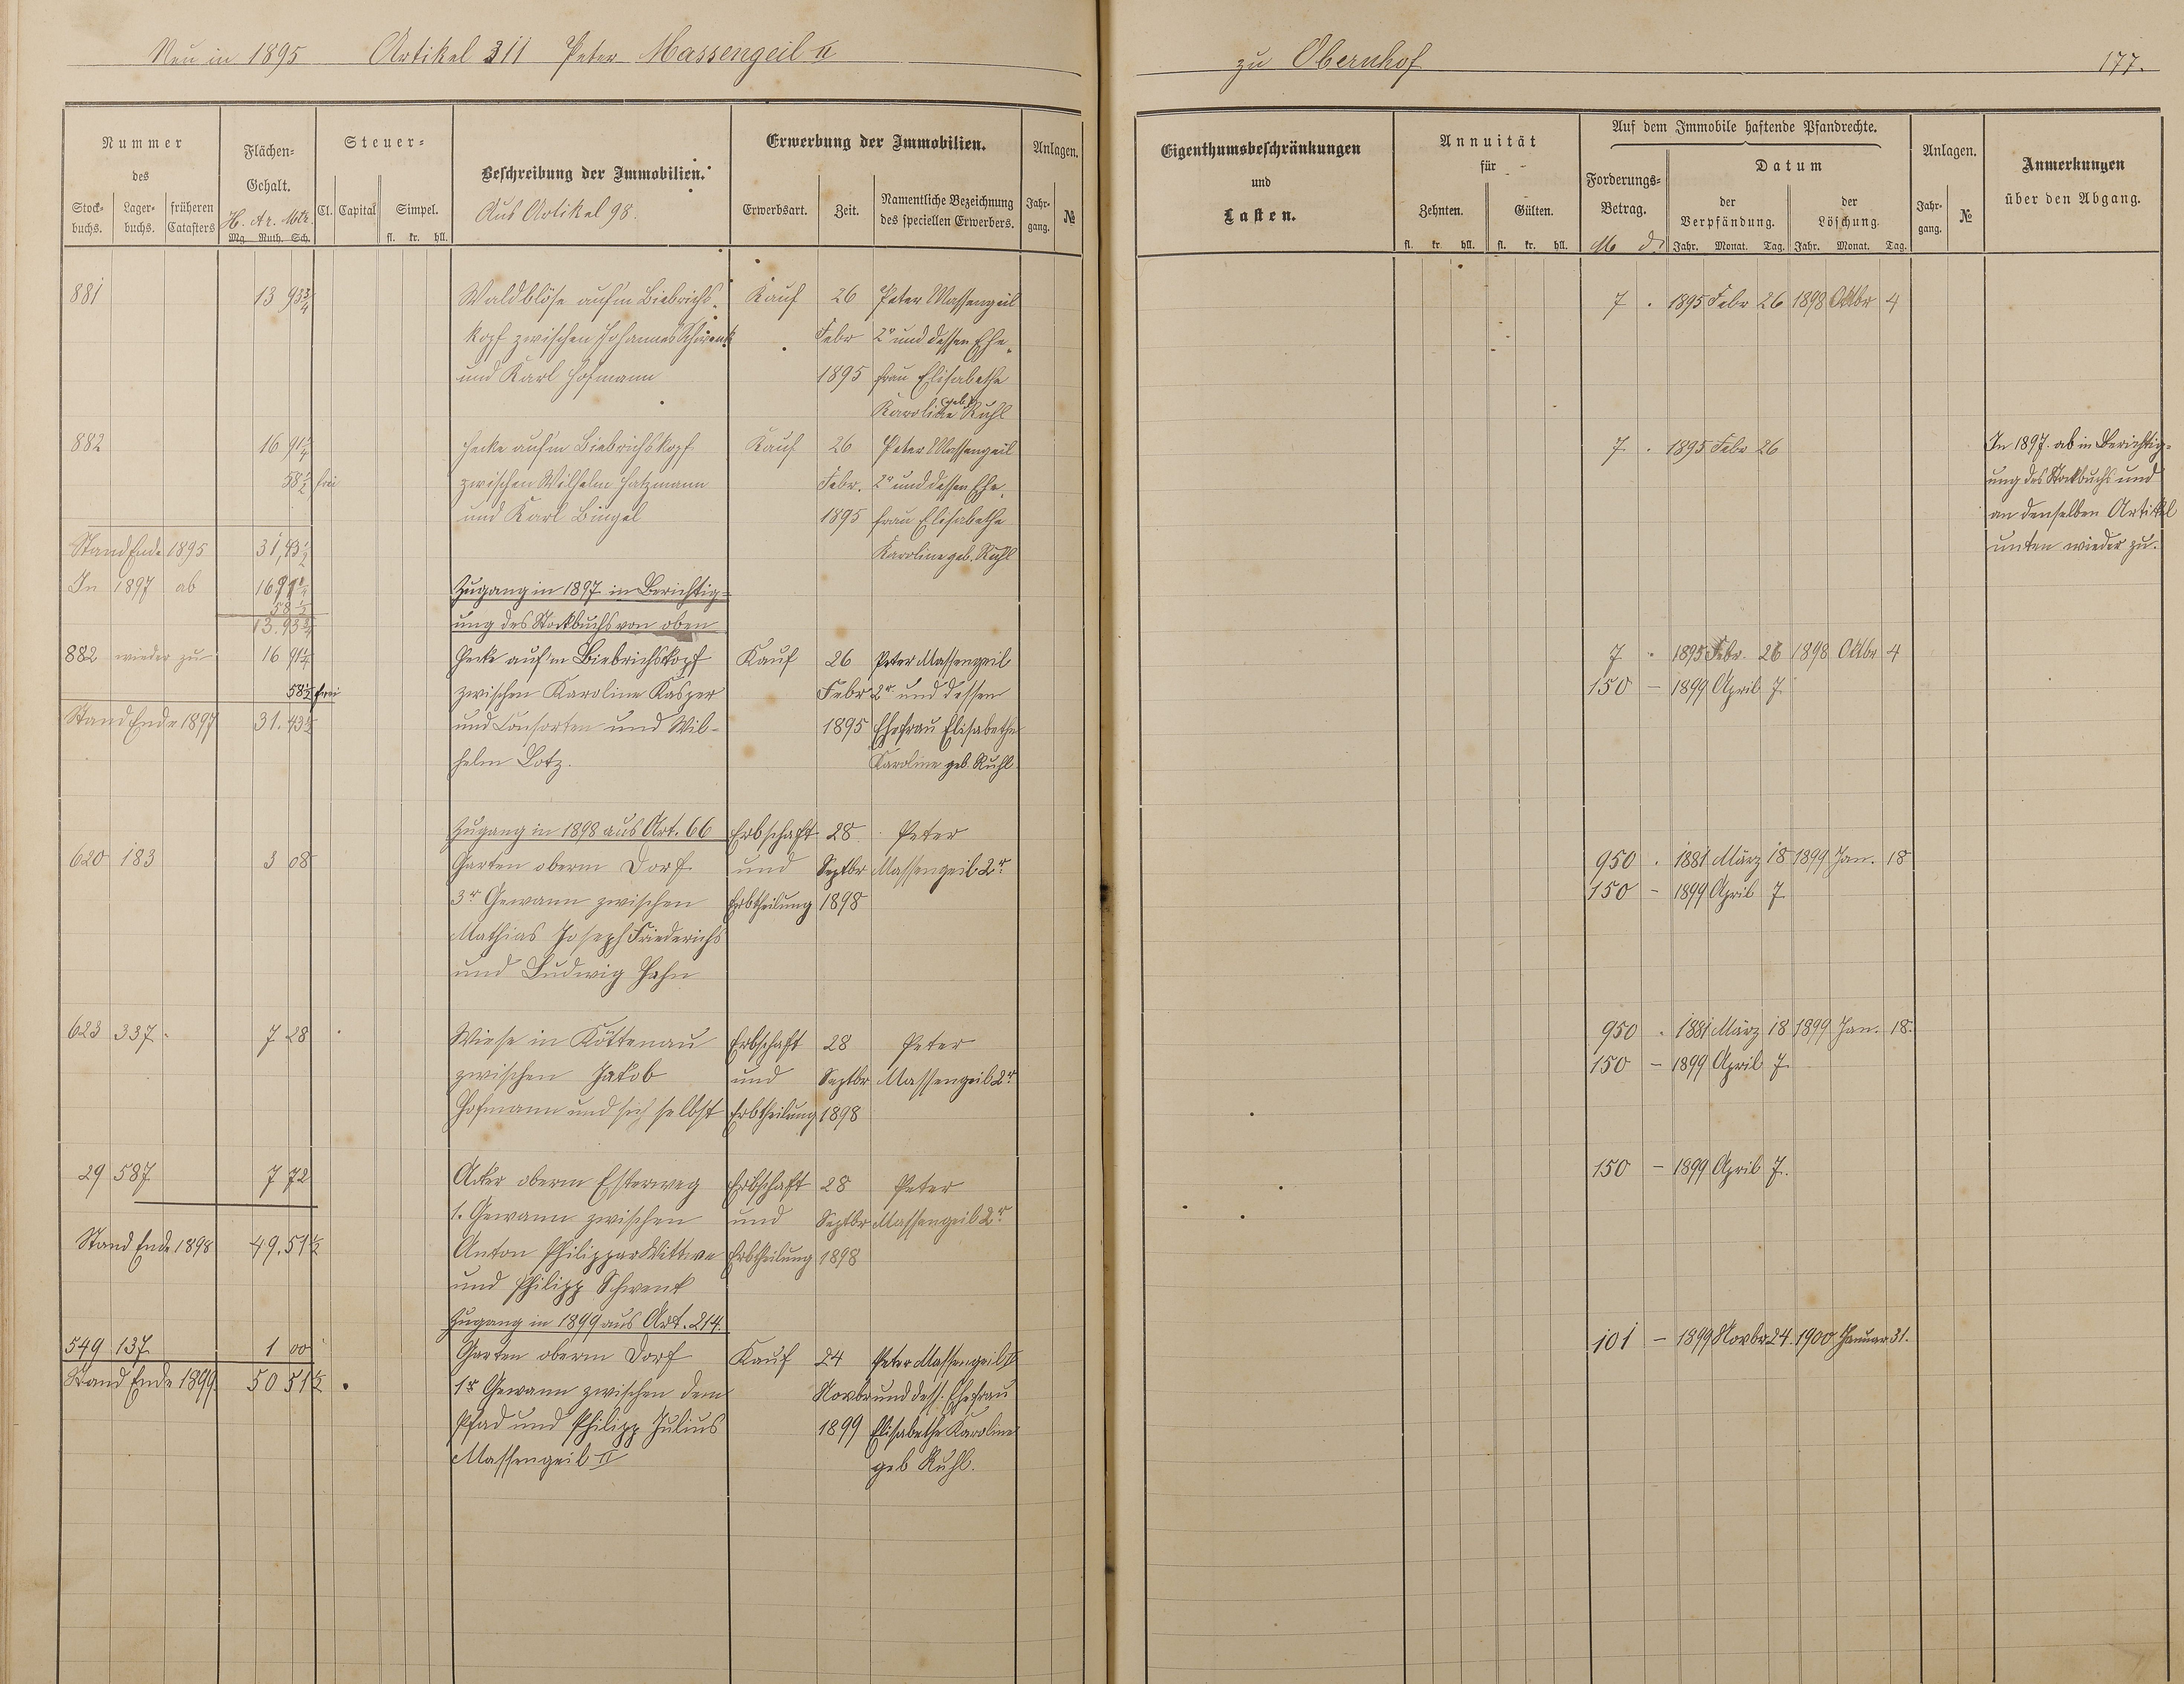 Neu in 1895 Artikel 311 Peter Massengeil II
zu Obernhof 177.
Nummer des
Stock- buchs. Lager- buchs. früheren Catasters
Flächen- Gehalt.
H. Ar. Mtr.
Mg. Ruth. Sch.
Steuer-
Cl. Capital Simpel.
fl. kr. hll.
Beschreibung der Immobilien.
Aus Artikel 98.
Erwerbung der Immobilien.
Erwerbsart. Zeit. Namentliche Bezeichnung des speciellen Erwerbers.
Anlagen.
Jahr- gang. №
Eigenthumsbeschränkungen
und
Lasten.
Annuität
für
Zehnten. Gülten.
fl. kr. hll. fl. kr. hll.
Auf dem Immobile haftende Pfandrechte.
Forderungs- Betrag.
M
Datum
der Verpfändung. der Löschung.
Jahr. Monat. Tag. Jahr. Monat. Tag.
Anlagen.
Jahr- gang. №
Anmerkungen
über den Abgang.
881 13 93 3/4 Waldblöse auf'm Biebrichs- Kauf 26 Peter Massengeil 7 . 1895 Febr 26 1898 Oktbr 4
kopf zwischen Johannes Schwenk Febr 2r und dessen Ehe-
und Karl Hofmann 1895 frau Elisabethe
Karoline geb. Ruhl
882 16 91 1/4 Hecke auf'm Biebrichskopf Kauf 26 Peter Massengeil 7 . 1895 Febr 26 In 1897 ab in Berichtig-
58 1/2 frei zwischen Wilhelm Hatzmann Febr. 2r und dessen Ehe- ung des Stockbuchs und
und Karl Bingel 1895 frau Elisabethe an denselben Artikel
Stand Ende 1895 31,43 1/2 Karoline geb. Ruhl unten wieder zu.
In 1897 ab 16 91 1/4 Zugang in 1897 in Berichtig-
58 1/2
13.93 3/4 ung des Stockbuchs von oben
882 wieder zu 16 91 1/4 Hecke auf'm Biebrichskopf Kauf 26 Peter Massengeil 7 . 1895 Febr. 26 1898 Oktbr 4
58 1/2 frei zwischen Karoline Kasper Febr 2r. und dessen 150 — 1899 April 7.
Stand Ende 1897 31.43 1/2 und Consorten und Wil- 1895 Ehefrau Elisabethe
helm Lotz. Karoline geb. Ruhl
Zugang in 1898 aus Art. 66 Erbschaft 28 Peter
620 183 3 08 Garten oberm Dorf und Septbr Massengeil 2r 950 . 1881 März 18 1899 Jan. 18
3r Gewann zwischen Erbtheilung 1898 150 — 1899 April 7.
Mathias Joseph Friederichs
und Ludwig Hahn
623 337. 7 28 Wiese in Köttenau Erbschaft 28 Peter 950 . 1881 März 18 1899 Jan. 18.
zwischen Jakob und Septbr Massengeil 2r 150 — 1899 April 7.
Hofmann und sich selbst Erbtheilung 1898
29 587 7 72 Acker oberm Esterweg Erbschaft 28 Peter 150 — 1899 April 7.
1. Gewann zwischen und Septbr Massengeil 2r
Stand Ende 1898 49.51 1/2 Anton Philippar Wittwe Erbtheilung 1898
und Philipp Schwenk
Zugang in 1899 aus Art. 214.
549 137. 1 00 Garten oberm Dorf Kauf 24 Peter Massengeil II 101 — 1899 Novbr 24. 1900 Januar 31.
Stand Ende 1899. 50 51 1/2 1r Gewann zwischen dem Novbr und dess. Ehefrau
Pfad und Philipp Julius 1899 Elisabethe Karoline
Massengeil II geb Ruhl.